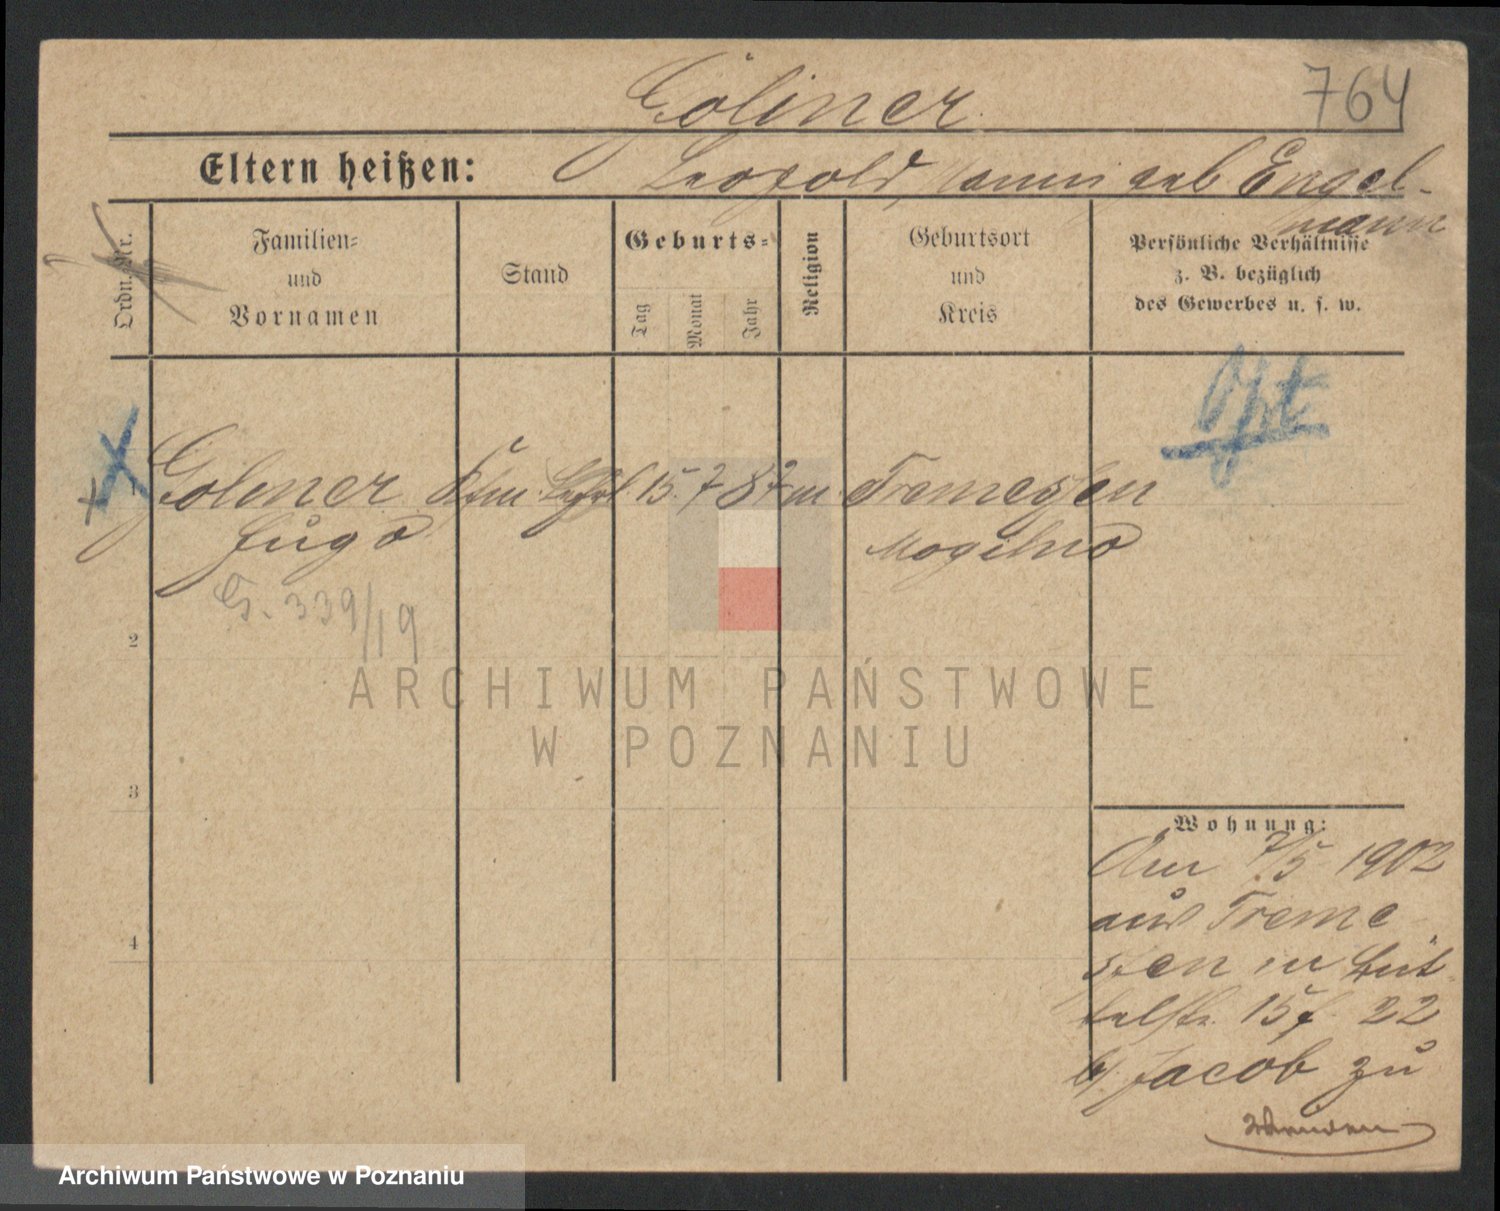 Göliner
764
Eltern heißen: Leopold, geb Engel-
mann
Ordn. Nr.
Familien-
und
Vornamen
Stand
Geburts-
Tag
Monat
Jahr
Religion
Geburtsort
und
Kreis
Persönliche Verhältnisse
z. B. bezüglich
des Gewerbes u. s. w.
1 Goliner 15. 7 87 m. Tremessen
Hugo Mogilno
G. 339/19
2
3
4
ARCHIWUM PAŃSTWOWE
W POZNANIU
Wohnung:
Am 7/5 1902
aus Treme
ssen in
15 22
b/ Jacob zu
Archiwum Państwowe w Poznaniu